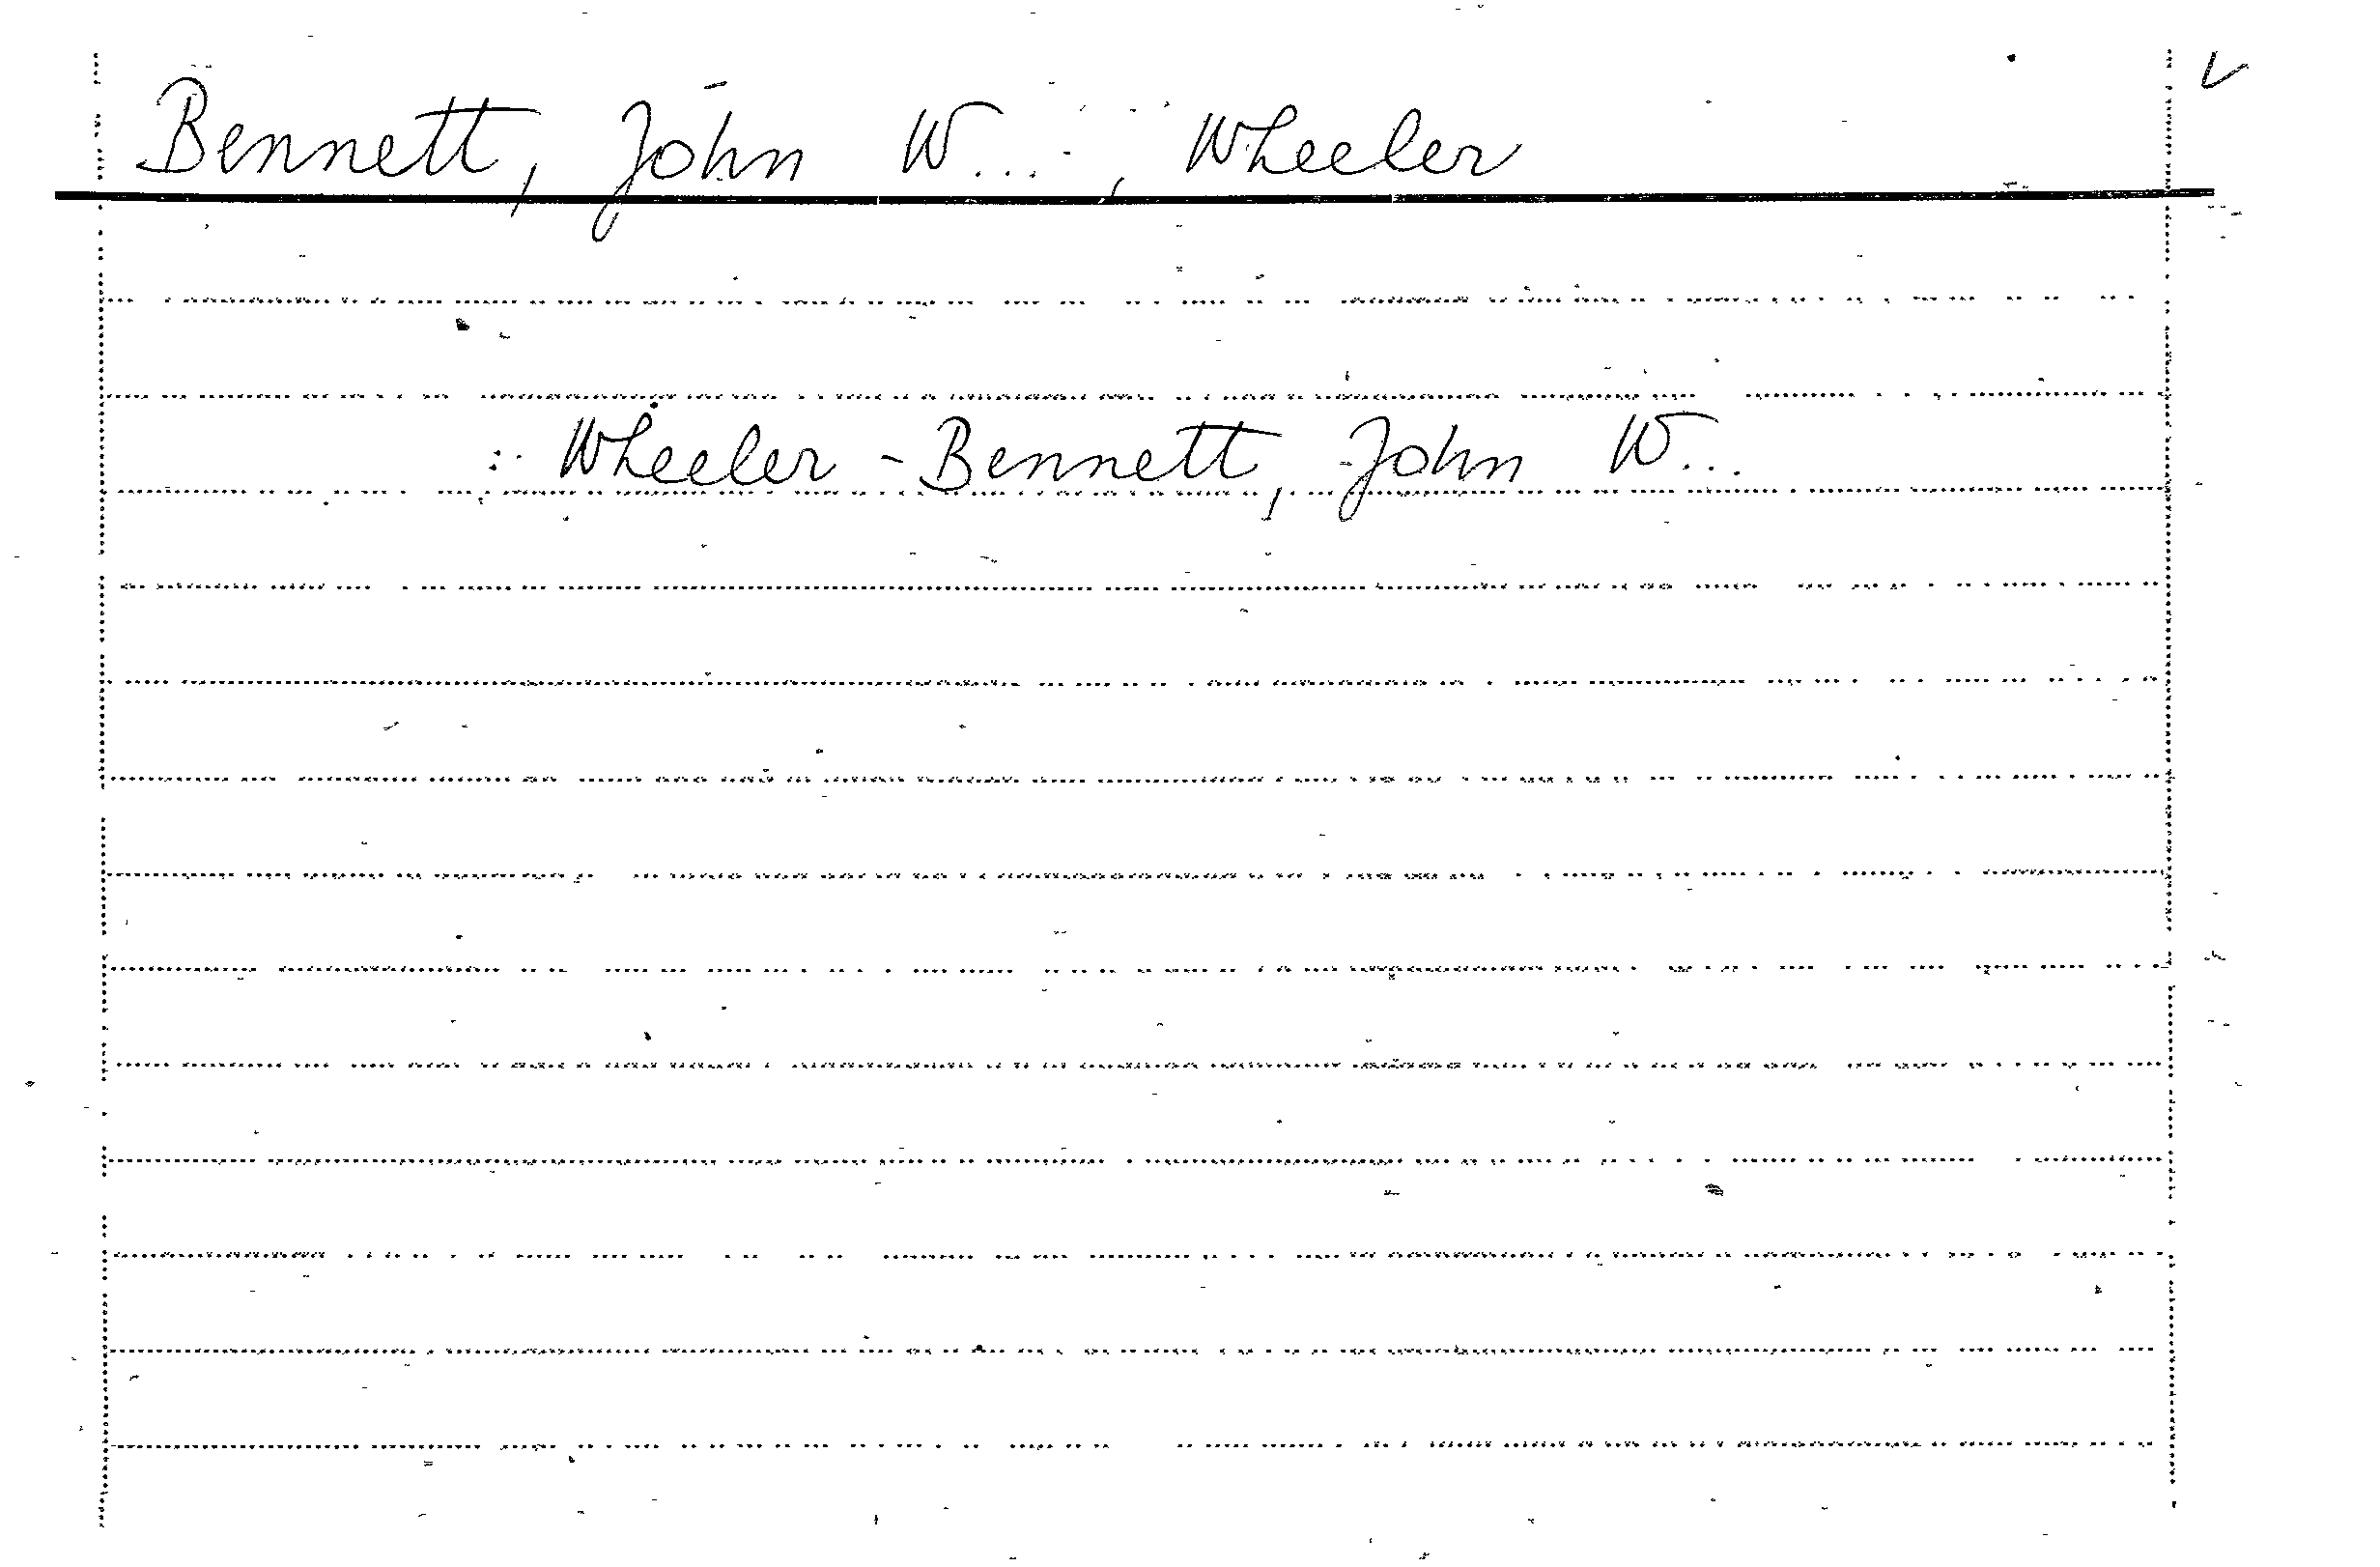 Bennett, John W..., Wheeler
: Wheeler - Bennett, John W...